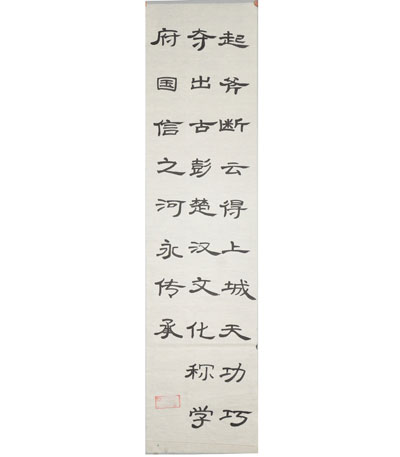 起斧断云得上城天功巧
夺出古彭楚汉文化称学
府国信之河永传承